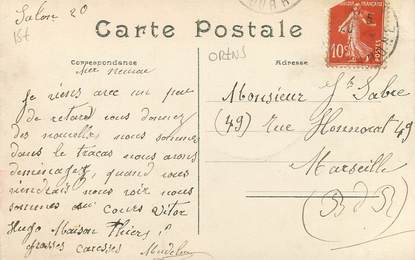 Salon 20
Carte Postale
ORTNS
Correspondance
Adresse
10c
POSTES
Je viens avec un peu
de retard vous donner
des nouvelles nous sommes
dans le tracas nous avons
déménager, quand vous
viendrait nous voir nous
sommes au Cours Vitor
Hugo Maison Thiers
grosses caresses
Monsieur Jh Sabre
(49) Rue Honnorat 49
Marseille
(B d R)